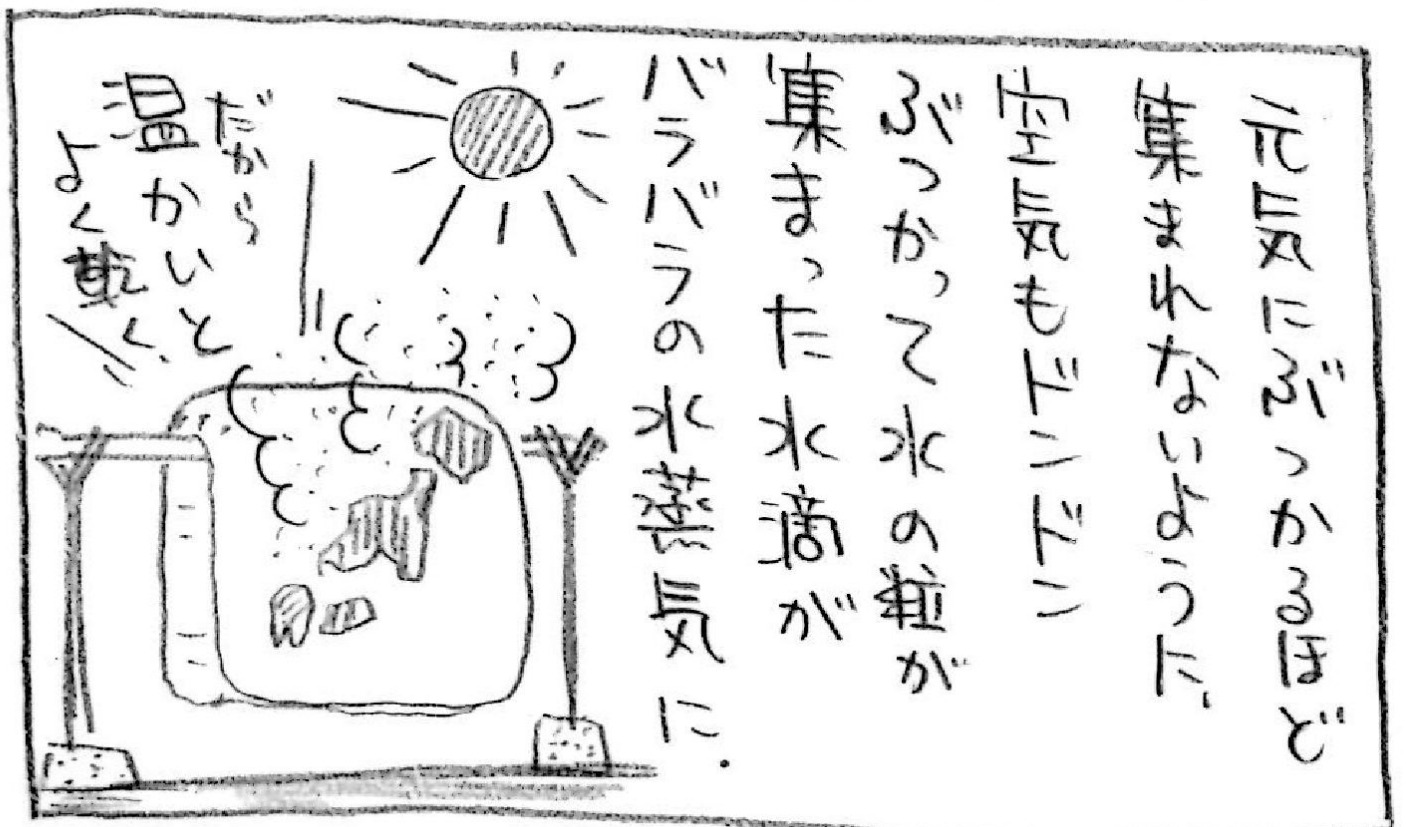 元気にぶつかるほど
集まれないように、
空気もドンドン
ぶつかって水の粒が
集まった水滴が
バラバラの水蒸気に.
だから
温かいと
よく乾く